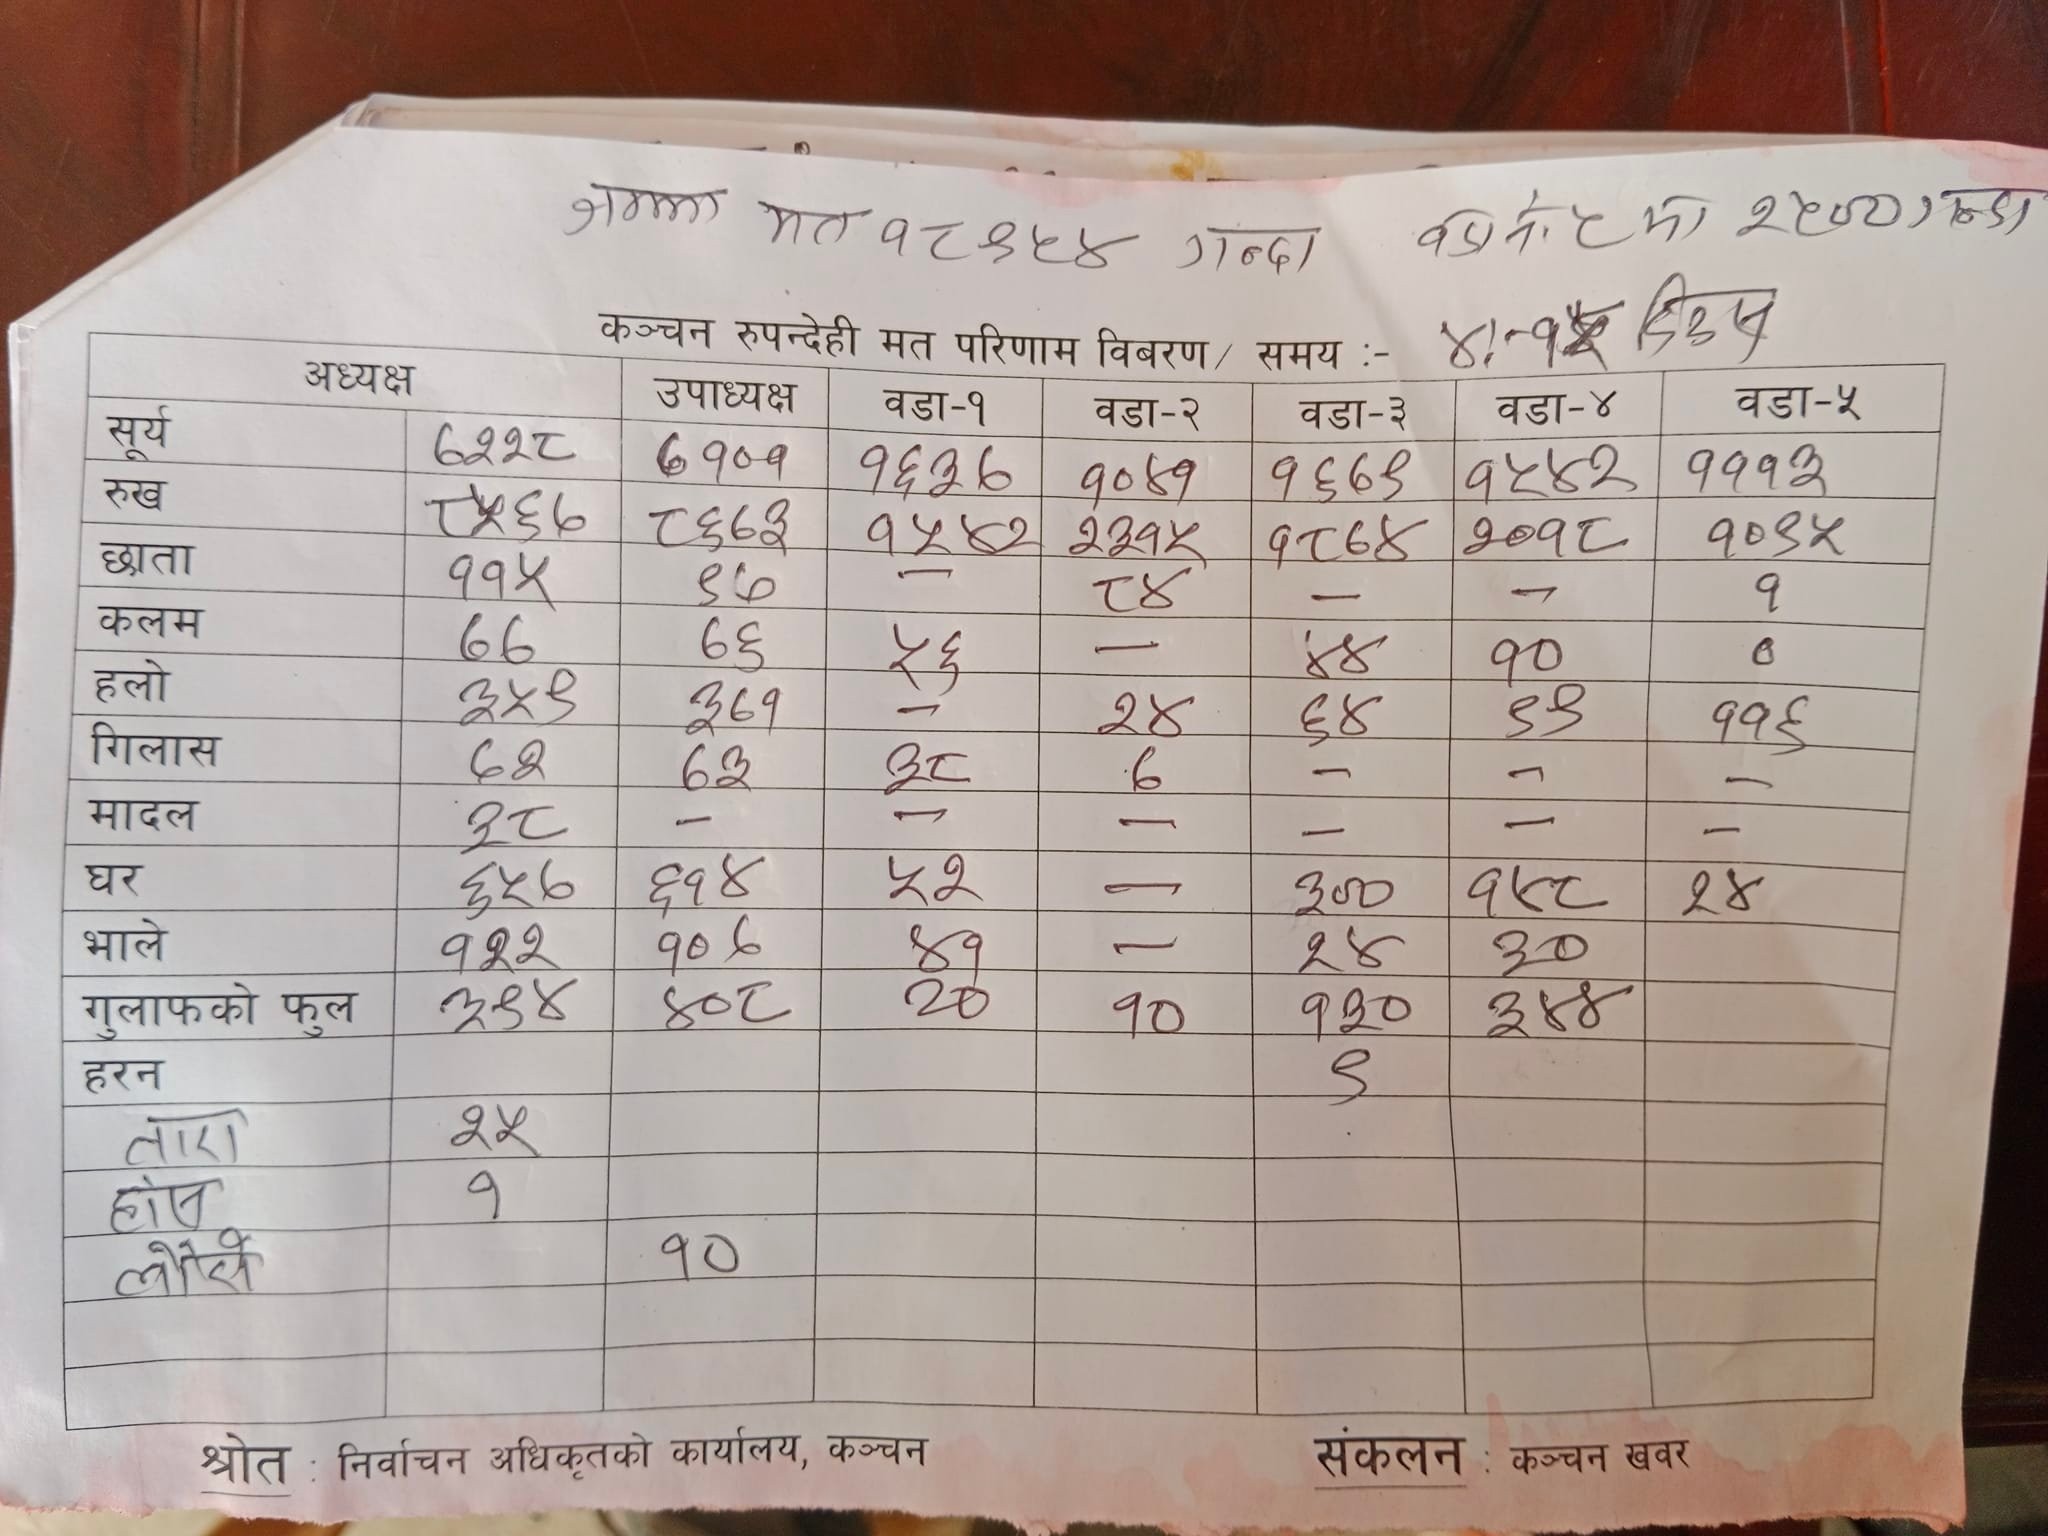 जम्मा मत १८९५४ गन्दा वडा नं. ८ मा २५०० गन्दा
कञ्चन रुपन्देही मत परिणाम विबरण/ समय :- ४:-१५
अध्यक्ष उपाध्यक्ष वडा-१ वडा-२ वडा-३ वडा-४ वडा-५
सूर्य ७२२८ ७१०१ १६३७ १०४१ १६७९ १५४२ १११३
रुख ८५६७ ८६७३ १५४२ २३१५ १८७४ २०१८ १०९५
छाता ११५ ९७ – ८४ – – १
कलम ७७ ७६ ५६ – ४४ १० ०
हलो ३५९ ३७१ – २४ ६४ ९९ ११६
गिलास ७२ ७३ ३८ ७ – – –
मादल ३८ – – – – – –
घर ६५७ ६१४ ५२ – ३०० १५८ २४
भाले १२२ १०७ ४१ – २४ ३०
गुलाफको फुल ३९४ ४०८ २० १० १३० ३४४
हरन ९
तारा २५
हाँस १
लौरो १०
श्रोत : निर्वाचन अधिकृतको कार्यालय, कञ्चन
संकलन : कञ्चन खवर